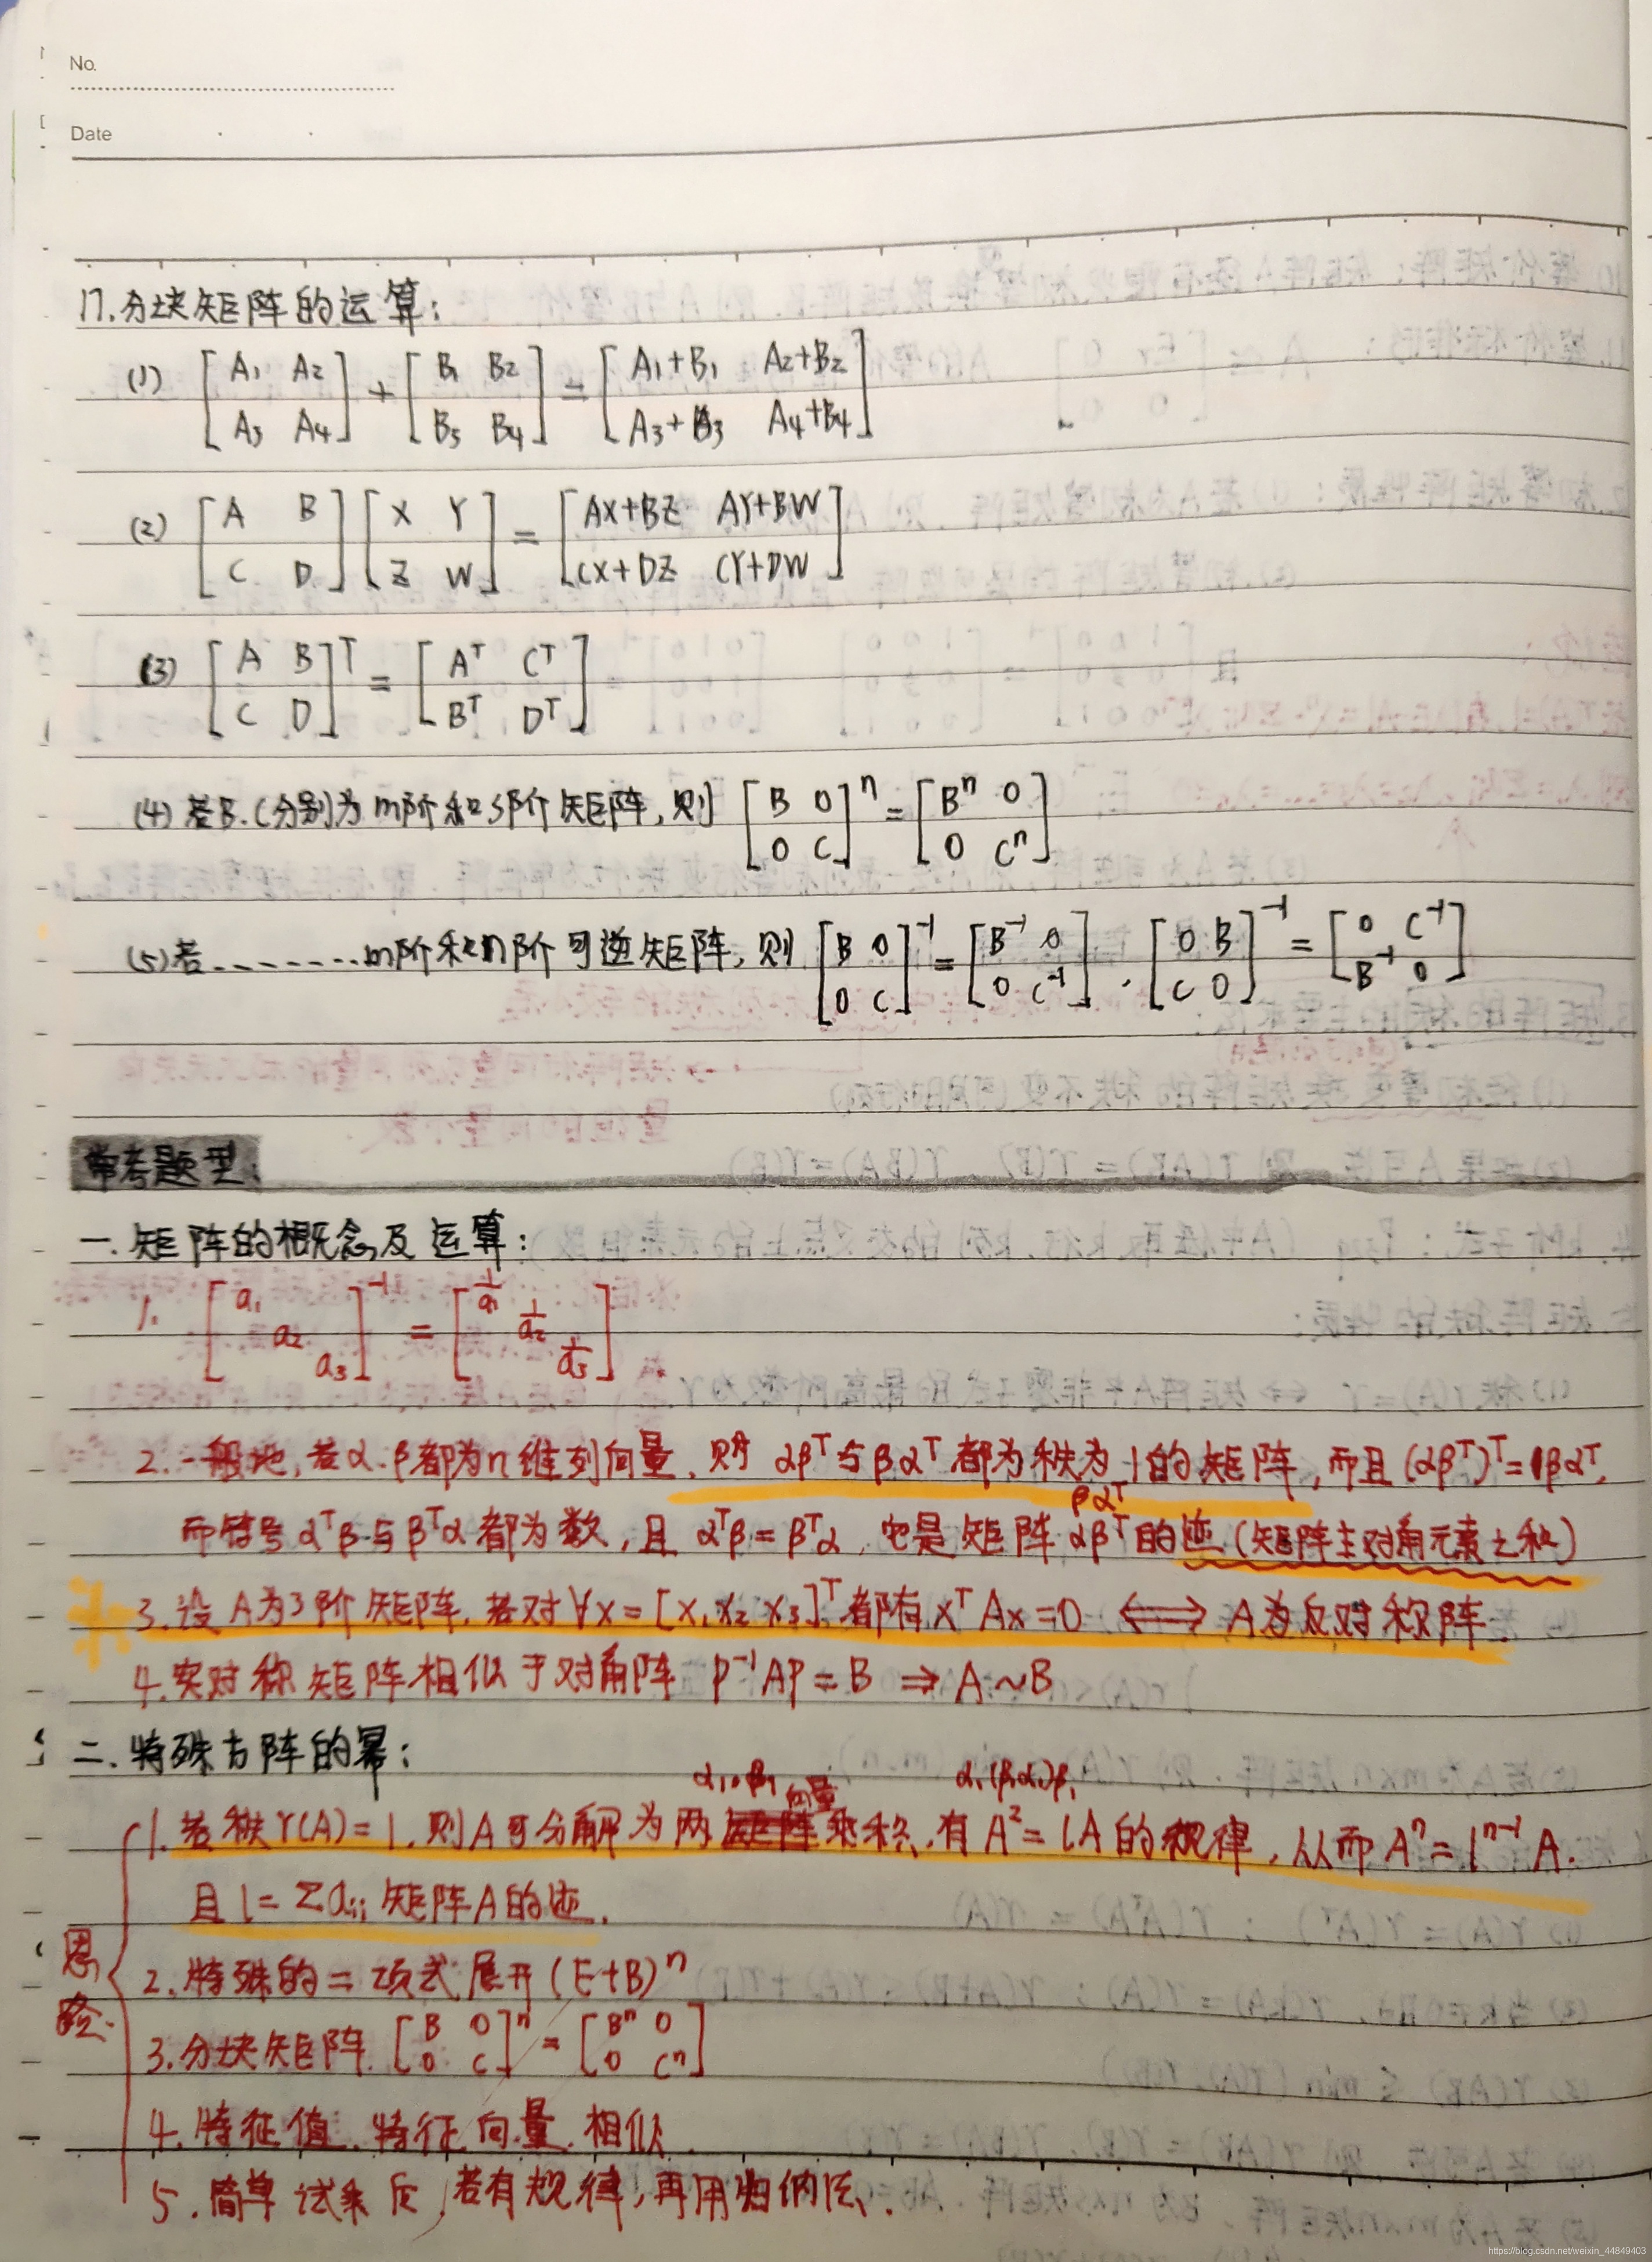 No.
Date
17.分块矩阵的运算:
(1) [A₁ A₂; A₃ A₄] + [B₁ B₂; B₃ B₄] = [A₁+B₁ A₂+B₂; A₃+B₃ A₄+B₄]
(2) [A B; C D] [X Y; Z W] = [AX+BZ AY+BW; CX+DZ CY+DW]
(3) [A B; C D]ᵀ = [Aᵀ Cᵀ; Bᵀ Dᵀ]
(4) 若B.C分别为m阶和s阶矩阵,则 [B 0; 0 C]ⁿ = [Bⁿ 0; 0 Cⁿ]
(5) 若--------m阶和n阶可逆矩阵,则 [B 0; 0 C]⁻¹ = [B⁻¹ 0; 0 C⁻¹] , [0 B; C 0]⁻¹ = [0 C⁻¹; B⁻¹ 0]
常考题型:
一.矩阵的概念及运算:
1. [a₁ a₂ a₃]⁻¹ = [1/a₁ 1/a₂ 1/a₃]
2.一般地,若α.β都为n维列向量,则 αβᵀ与βαᵀ都为秩为1的矩阵,而且(αβᵀ)ᵀ=βαᵀ,
βαᵀ
而符号αᵀβ与βᵀα都为数,且 αᵀβ=βᵀα,它是矩阵αβᵀ的迹(矩阵主对角元素之和)
3.设A为3阶矩阵,若对∀x=[x₁ x₂ x₃]ᵀ都有xᵀAx=0 ⟺ A为反对称阵.
4.实对称矩阵相似于对角阵 P⁻¹AP=B ⇒ A~B
二.特殊方阵的幂:
α₁,β₁ 向量 α₁(β₁α₁)β₁
1.若秩r(A)=1,则A可分解为两矩阵乘积,有A²=lA的规律,从而Aⁿ=lⁿ⁻¹A.
且l=Σaᵢᵢ矩阵A的迹.
思
2.特殊的二项式展开(E+B)ⁿ
3.分块矩阵 [B 0; 0 C]ⁿ = [Bⁿ 0; 0 Cⁿ]
4.特征值.特征向量.相似.
5.简单试乘后,若有规律,再用归纳法.
https://blog.csdn.net/weixin_44849403